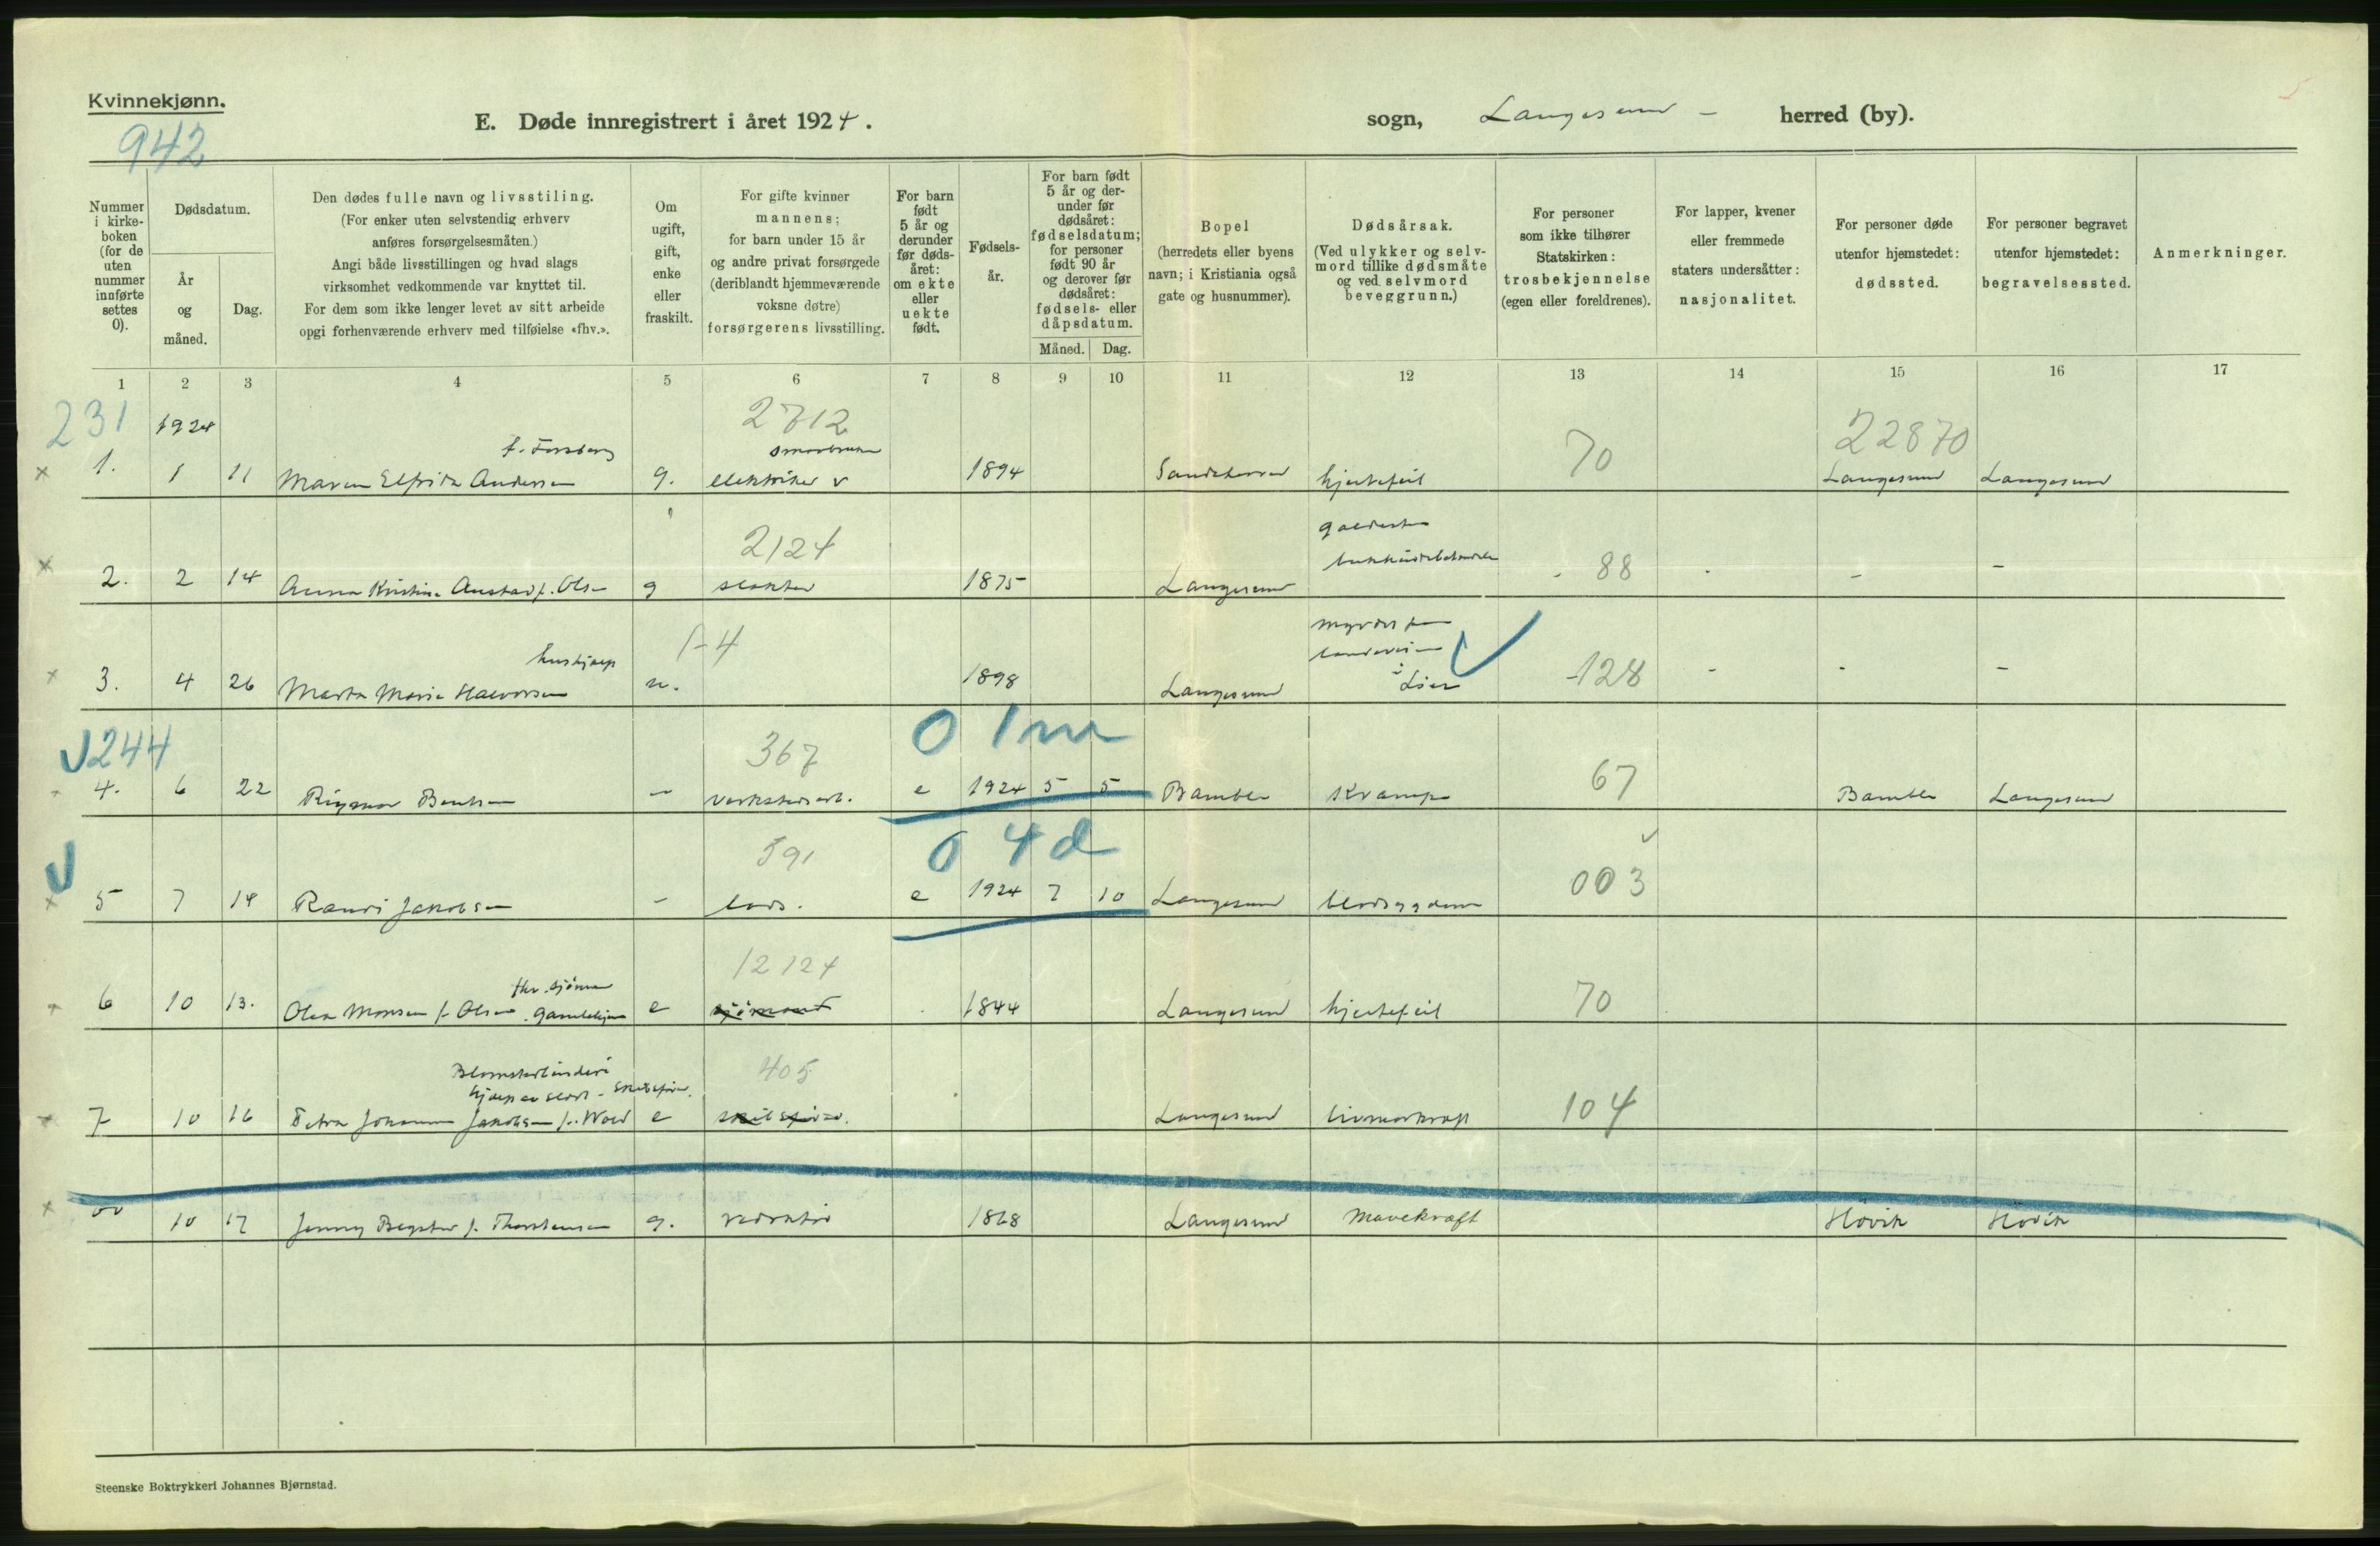 Kvinnekjønn.
942
E. Døde innregistrert i året 1924.
sogn, Langesund – herred (by).
Nummer i kirke-boken (for de uten nummer innførte settes 0).
Dødsdatum.
År og måned.
Dag.
Den dødes fulle navn og livsstiling.
(For enker uten selvstendig erhverv
anføres forsørgelsesmåten.)
Angi både livsstillingen og hvad slags
virksomhet vedkommende var knyttet til.
For dem som ikke lenger levet av sitt arbeide
opgi forhenværende erhverv med tilføielse «fhv.».
Om ugift, gift, enke eller fraskilt.
For gifte kvinner
mannens;
for barn under 15 år
og andre privat forsørgede
(deriblandt hjemmeværende
voksne døtre)
forsørgerens livsstilling.
For barn født 5 år og derunder før døds-året: om ekte eller uekte født.
Fødsels-år.
For barn født 5 år og der-under før dødsåret: fødselsdatum; for personer født 90 år og derover før dødsåret: fødsels- eller dåpsdatum.
Måned. Dag.
Bopel
(herredets eller byens
navn; i Kristiania også
gate og husnummer).
Dødsårsak.
(Ved ulykker og selv-
mord tillike dødsmåte
og ved selvmord
beveggrunn.)
For personer
som ikke tilhører
Statskirken:
trosbekjennelse
(egen eller foreldrenes).
For lapper, kvener
eller fremmede
staters undersåtter:
nasjonalitet.
For personer døde
utenfor hjemstedet:
dødssted.
For personer begravet
utenfor hjemstedet:
begravelsessted.
Anmerkninger.
1 2 3 4 5 6 7 8 9 10 11 12 13 14 15 16 17
231 1924 2712 22870
f. Forsberg
1. 1 11 Maren Elfrida Andersen g. elektriker v 1894 Sandeherred hjertefeil 70 Langesund Langesund
2124
2. 2 14 Anna Kristine Austad f. Olsen g slakter 1875 Langesund - 88 - - -
hushjelp 1-4
myrdet på
landeveien
i Lier
3. 4 26 Marta Marie Halvorsen u. 1898 Langesund -128 - - -
244 367 0 1m
4. 6 22 Rigmor Bentsen – verkstedsarb. e 1924 5 5 Bamble Krampe 67 Bamble Langesund
591 0 4d
5 7 14 Randi Jakobsen - lods. e 1924 7 10 Langesund 003
12124
fhv. sjömann
6 10 13. Olea Monsen f. Olsen. Gamlehjem e sjömand 1844 Langesund hjertefeil 70
405
Blomsterbinderi
7 10 16 Petra Johanne Jakobsen f. Wold e skibsfører. Langesund livmorkræft 104
10 17 Jenny f. Thorstensen g. redaktør 1868 Langesund Mavekræft Hövik Hövik
Steenske Boktrykkeri Johannes Bjørnstad.